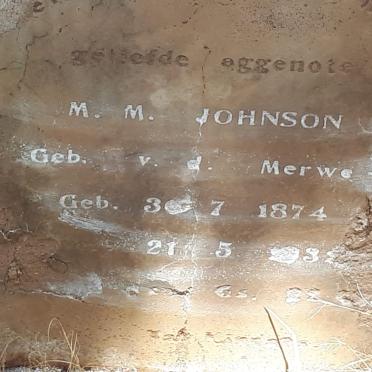 geliefde eggenote
M. M. JOHNSON
Geb. v. d. Merwe
Geb. 7 1874
21 5
Gs.